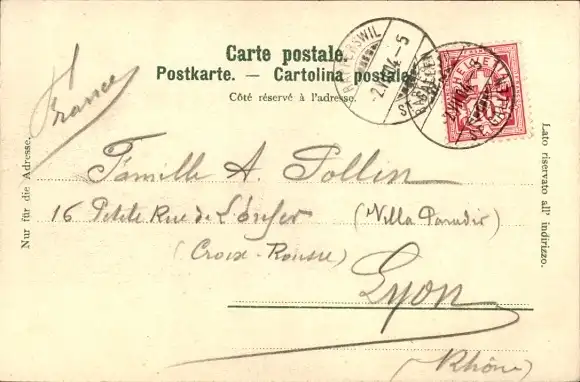 Carte postale.
Postkarte. — Cartolina postale
Côté réservé à l'adresse.
France
Nur für die Adresse.
Lato riservato all' indirizzo.
RAPPERSWIL
HELVETIA
Famille A. Follin
16 Petite Rue de
(Villa Paradis)
(Croix-Rousse)
Lyon
(Rhône)